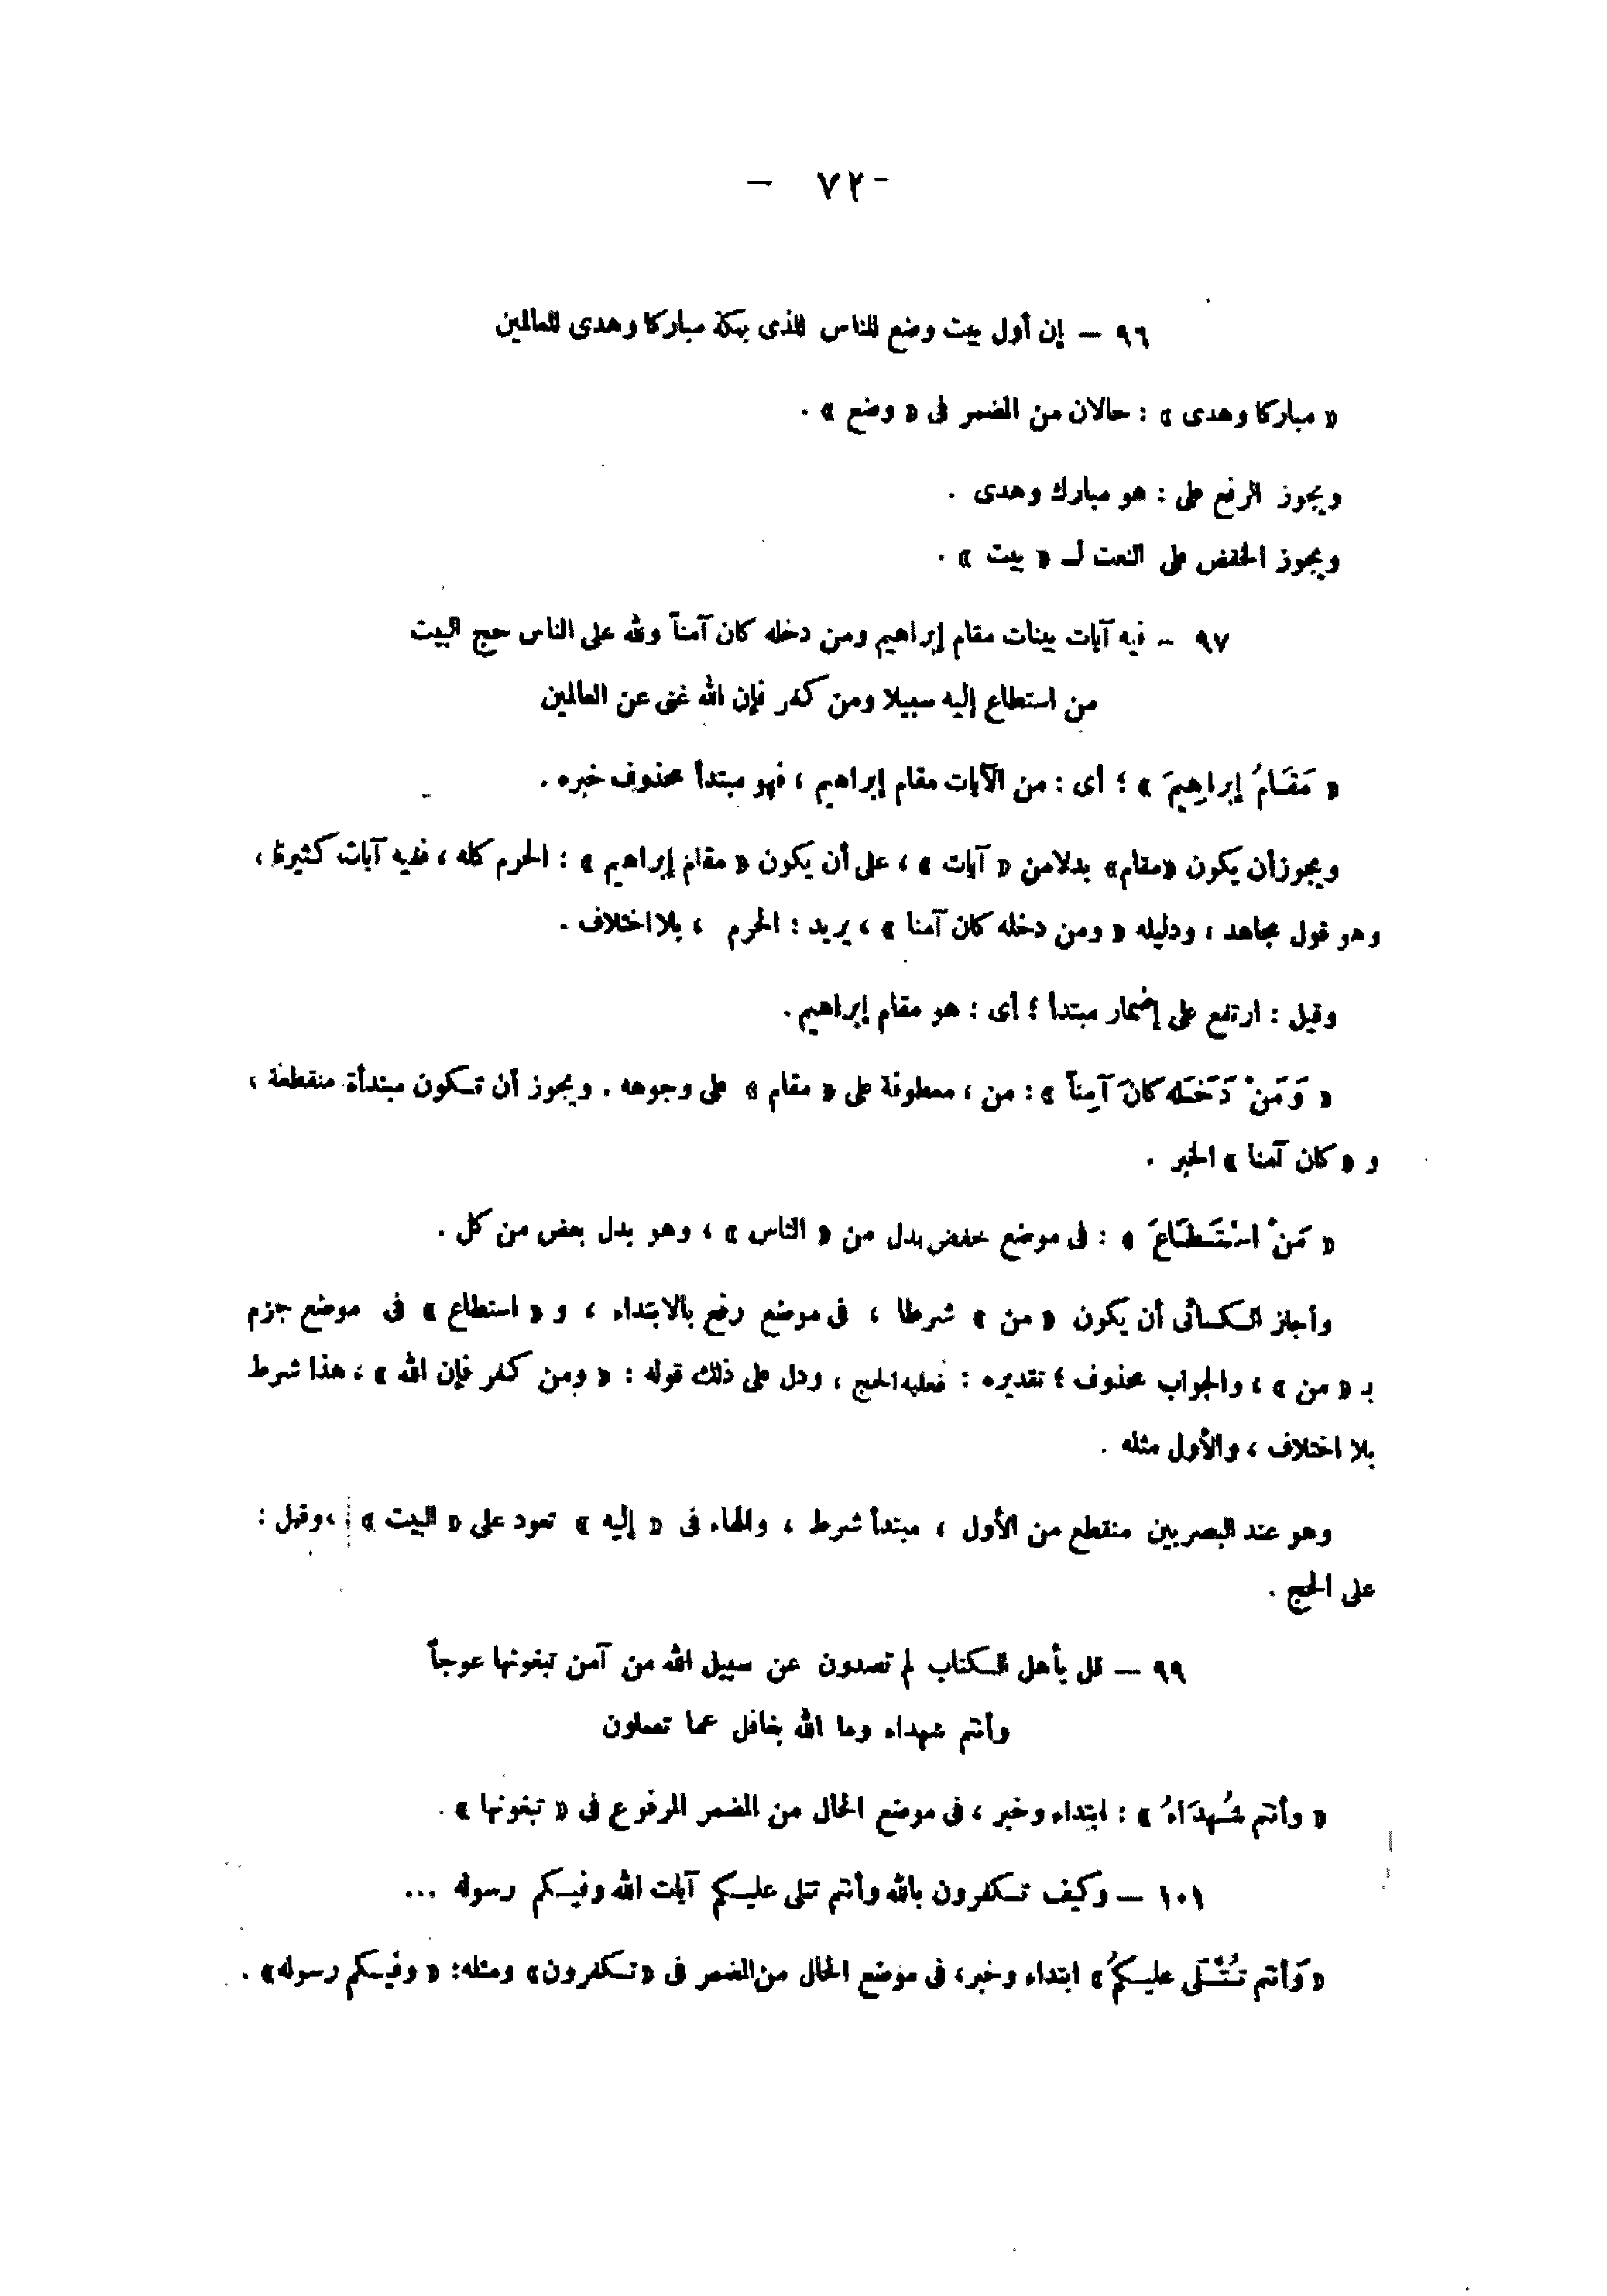 — ٧٢ -
٩٦ — إن أول بيت وضع للناس للذى ببكة مباركا وهدى للعالمين
« مباركا وهدى » : حالان من المضمر فى « وضع » .
ويجوز الرفع على : هو مبارك وهدى .
ويجوز الخفض على النعت لـ « بيت » .
٩٧ — فيه آيات بينات مقام إبراهيم ومن دخله كان آمناً ولله على الناس حج البيت
من استطاع إليه سبيلا ومن كفر فإن الله غنى عن العالمين
« مَقَامُ إبراهِيمَ » ؛ أى : من الآيات مقام إبراهيم ، فهو مبتدأ محذوف خبره .
ويجوز أن يكون «مقام» بدلا من « آيات » ، على أن يكون « مقام إبراهيم » : الحرم كله ، ففيه آيات كثيرة ،
وهو قول مجاهد ، ودليله « ومن دخله كان آمنا » ، يريد : الحرم ، بلا اختلاف .
وقيل : ارتفع على إضمار مبتدأ ؛ أى : هو مقام إبراهيم .
« وَمَنْ دَخَلَه كانَ آمِناً » : من ، معطوفة على « مقام » على وجوهه . ويجوز أن تكون مبتدأة منقطعة ،
و « كان آمنا » الخبر .
« مَنْ اسْتَطَاعَ » : فى موضع خفض بدل من « الناس » ، وهو بدل بعض من كل .
وأجاز الكسائى أن يكون « من » شرطا ، فى موضع رفع بالابتداء ، و « استطاع » فى موضع جزم
بـ « من » ، والجواب محذوف ؛ تقديره : فعليه الحج ، ودل على ذلك قوله : « ومن كفر فإن الله » ، هذا شرط
بلا اختلاف ، والأول مثله .
وهو عند البصريين منقطع من الأول ، مبتدأ شرط ، والهاء فى « إليه » تعود على « البيت » ، وقيل :
على الحج .
٩٩ — قل يأهل الكتاب لم تصدون عن سبيل الله من آمن تبغونها عوجاً
وأنتم شهداء وما الله بغافل عما تعملون
« وأنتم شُهدَاءُ » : ابتداء وخبر ، فى موضع الحال من المضمر المرفوع فى « تبغونها » .
١٠١ — وكيف تكفرون بالله وأنتم تتلى عليكم آيات الله وفيكم رسوله ...
« وَأنتم تُتْلَى عليكمُ » ابتداء وخبر، فى موضع الحال من المضمر فى «تكفرون» ومثله: « وفيكم رسوله» .